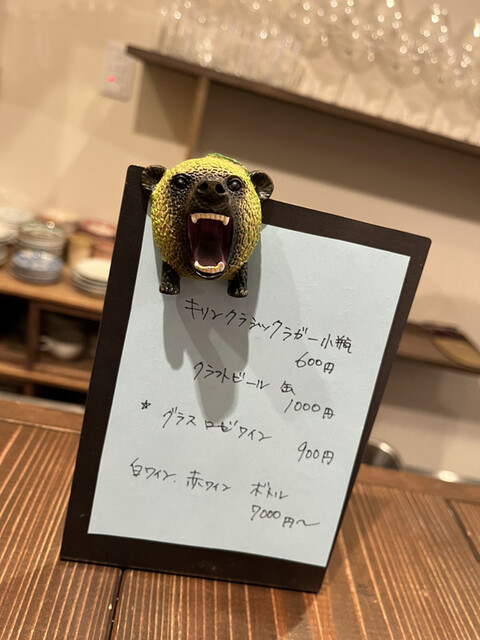 キリンクラシックラガー小瓶
600円
クラフトビール 缶
1000円
* グラスロゼワイン
900円
白ワイン、赤ワイン ボトル
7000円〜